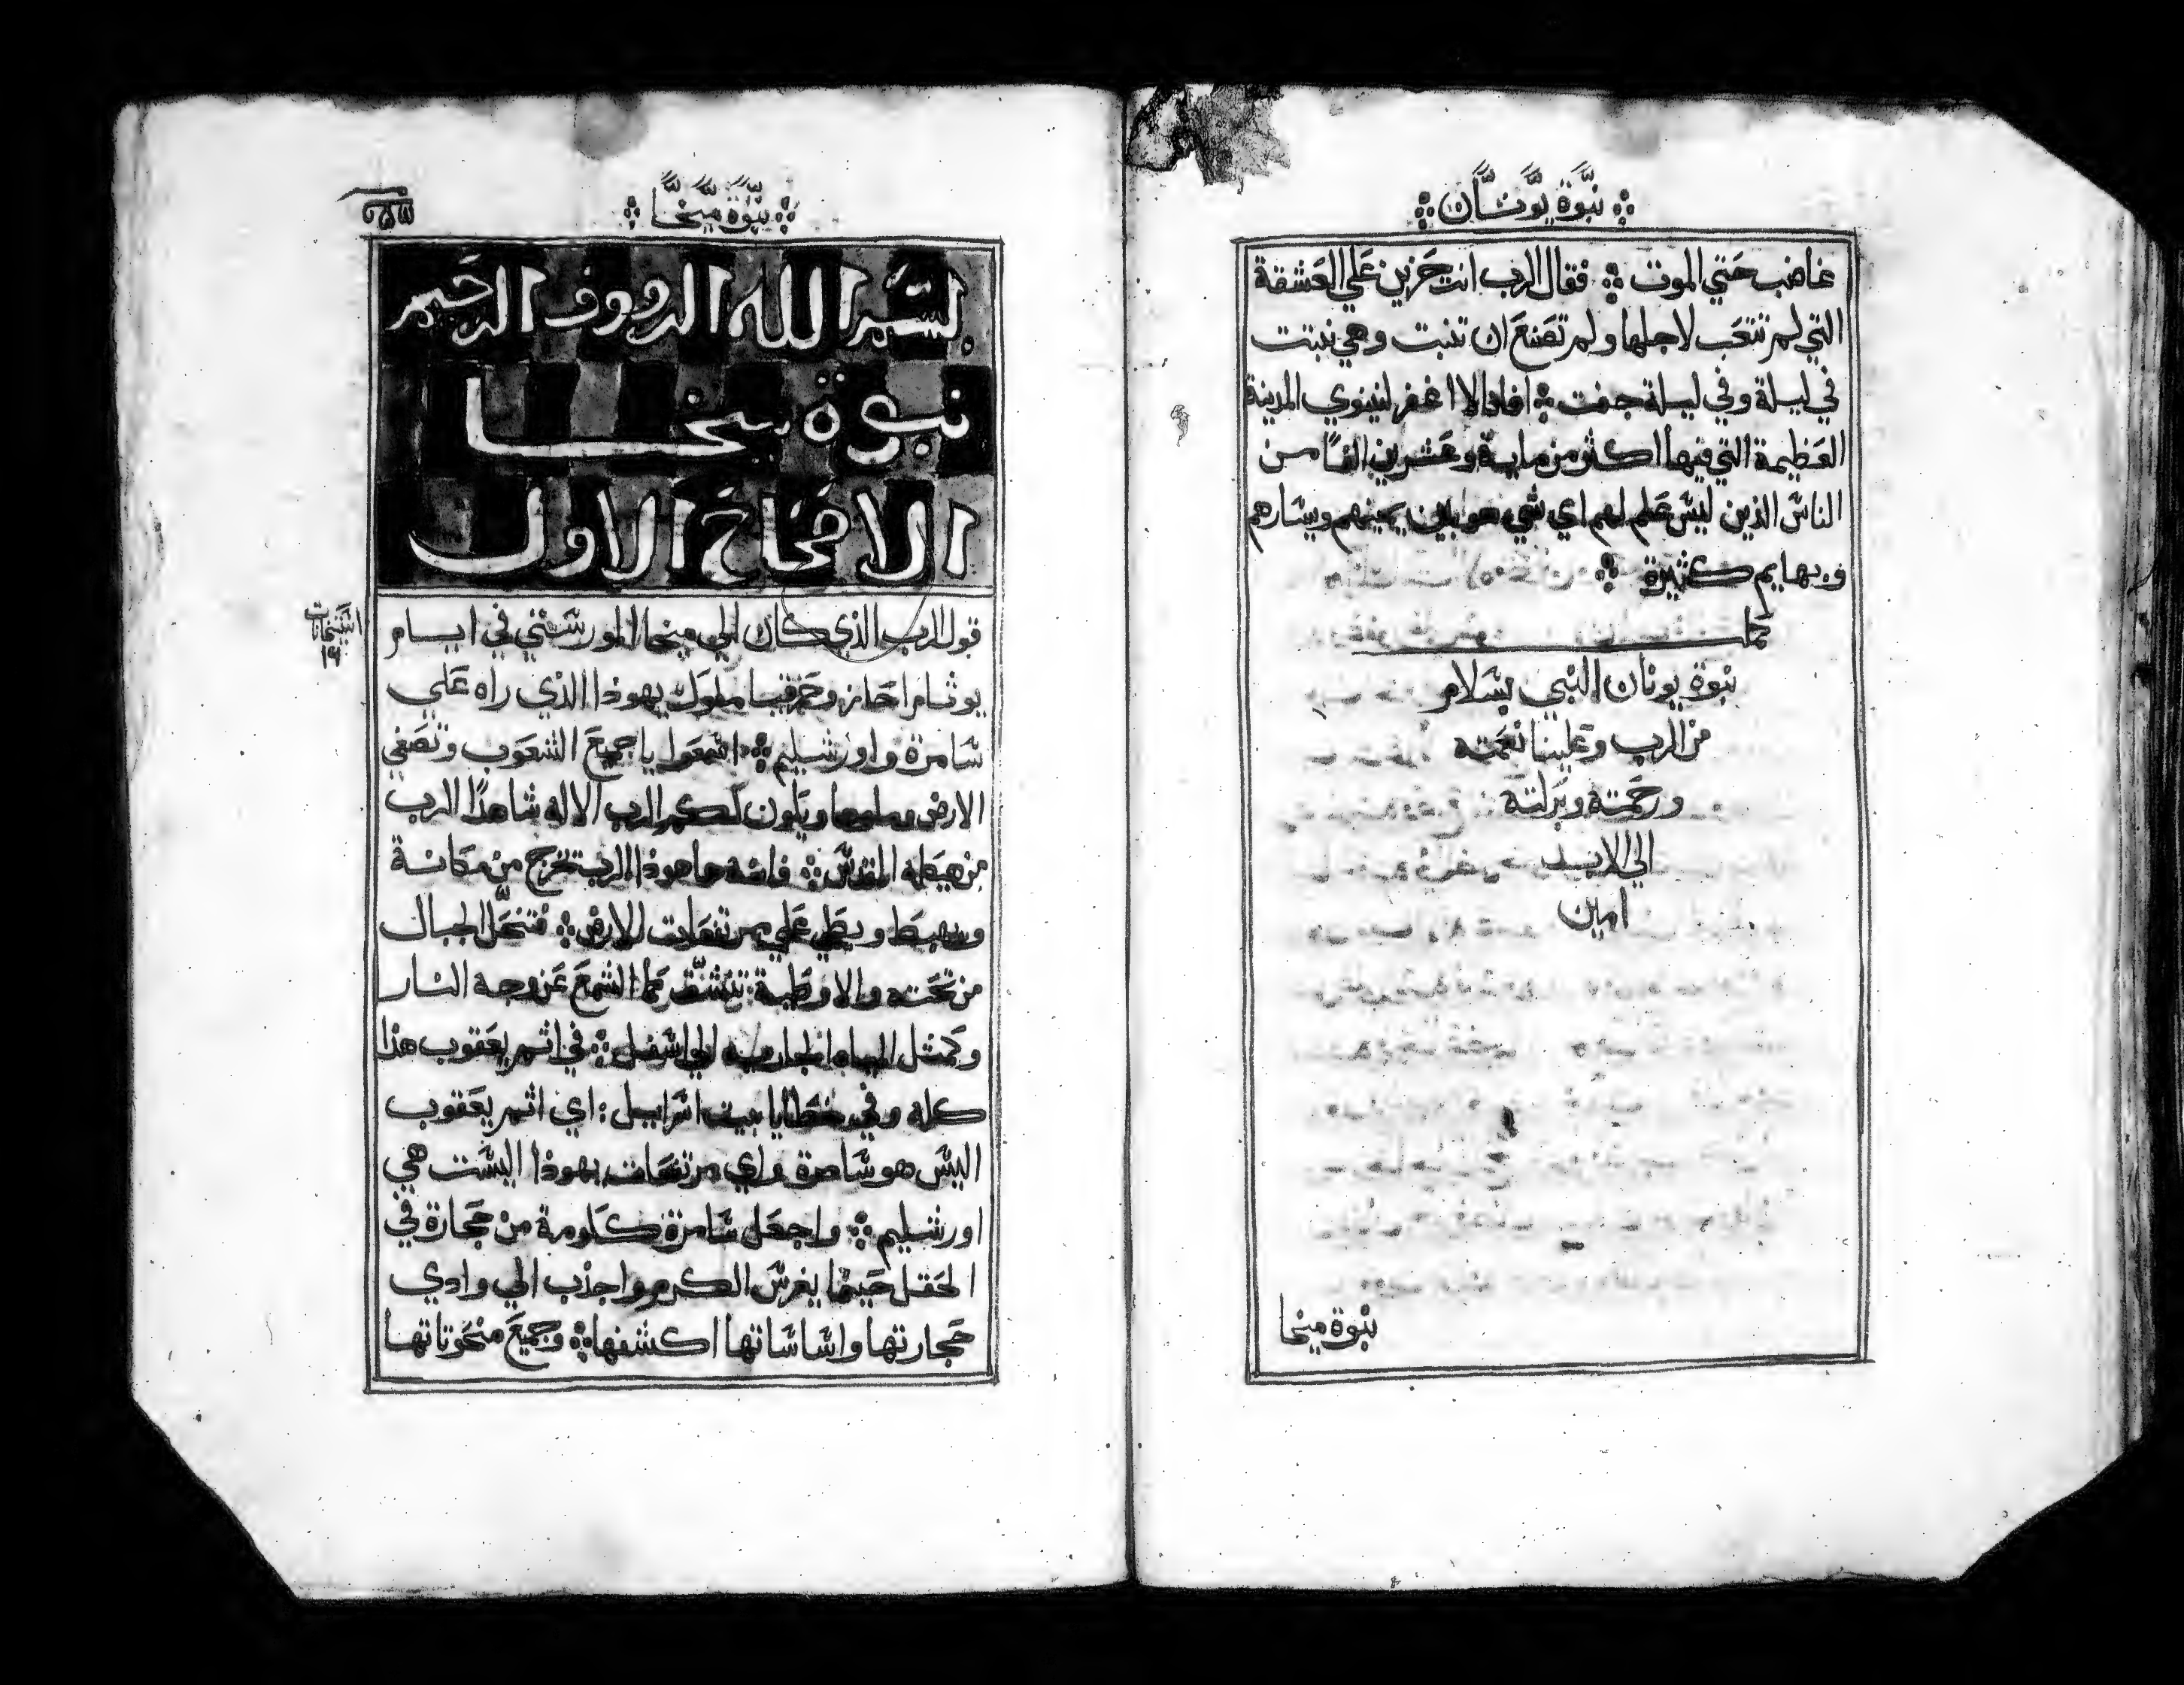 نبوة يونان
غاضب حتي الموت فقال الرب انت حزين علي العشقة
التي لم تتعب لاجلها ولم تصنع ان تنبت وهي نبتت
في ليلة وفي ليلة جفت افانا لا اغفر لنينوي المدينة
العظيمة التي فيها اكثر من ماية وعشرين الفًا من
الناس الذين ليس علم لهم اي شي هو بين يمينهم ويسارهم
وبهايم كثيرة
كملت
نبوة يونان النبي بسلام
من الرب وعلينا نعمته
ورحمته وبركته
الي الابد
امين
نبوة ميخا
نبوة ميخا
بسم الله الرووف الرحيم
نبوة ميخا
الاصحاح الاول
قول الرب الذي كان الي ميخا المورشتي في ايام
يوثام احاز وحزقيا ملوك يهوذا الذي راه علي
سامرة واورشليم اسمعوا يا جميع الشعوب وتصغي
الارض وملوها ويكون لكم الرب الاله شاهدًا الرب
من هيكله المقدس فانه ها هوذا الرب يخرج من مكانة
ويهبط ويطي علي مرتفعات الارض فتنحل الجبال
من تحته والاوطية تتشقق كما الشمع عن وجه النار
وكمثل المياه الجارية الي اسفل في اثم يعقوب هذا
كله وفي خطايا بيت اسراييل اي اثم يعقوب
اليس هو سامرة واي مرتفعات يهوذا اليست هي
اورشليم واجعل سامرة ككومة من حجارة في
الحقل حينما يغرس الكرم واجذب الي وادي
حجارتها واساساتها اكشفها وجميع منحوتاتها